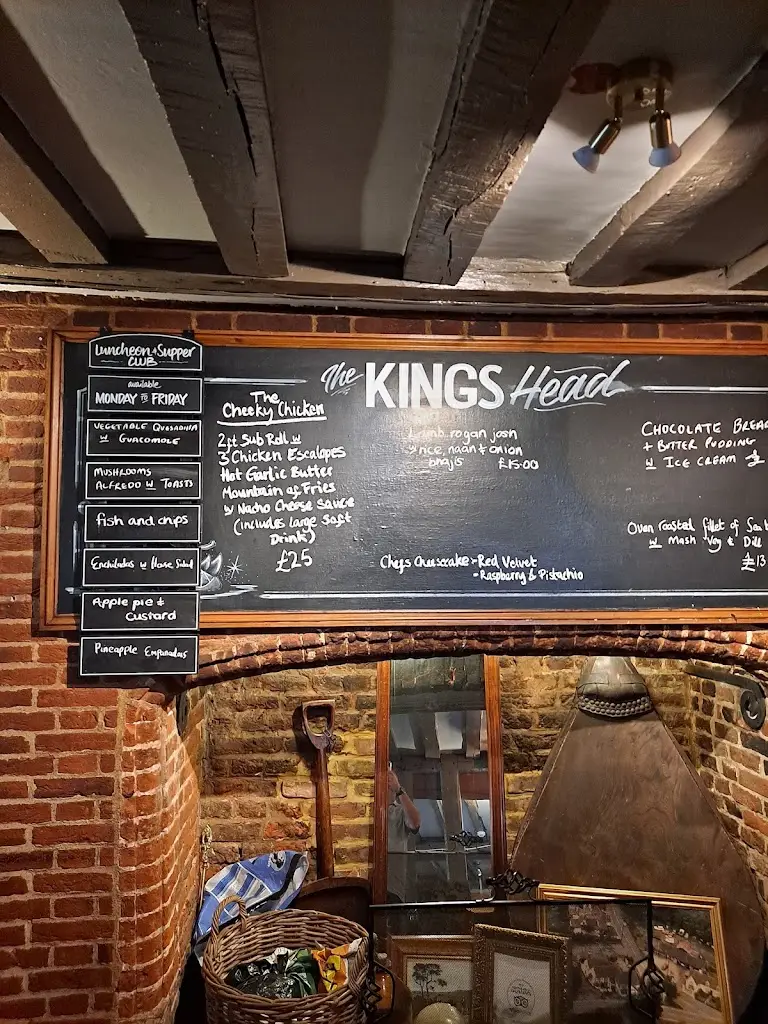 Luncheon & Supper
CLUB
available
MONDAY TO FRIDAY
VEGETABLE QUESADILLA
W GUACOMOLE
MUSHROOMS
ALFREDO W TOASTS
fish and chips
Enchiladas W House Salad
Apple pie &
Custard
Pineapple Empanadas
The
Cheeky Chicken
2ft Sub Roll W
3 Chicken Escalopes
Hot Garlic Butter
Mountain of Fries
W Nacho Cheese Sauce
(includes large Soft
Drink)
£25
The KINGS Head
Lamb rogan josh
rice, naan & onion
bhajis £15.00
Chefs Cheesecake - Red Velvet
- Raspberry & Pistachio
CHOCOLATE BREA
+ BUTTER PUDDING
W ICE CREAM
Oven roasted fillet of Sea b
W Mash Veg & Dill
£13